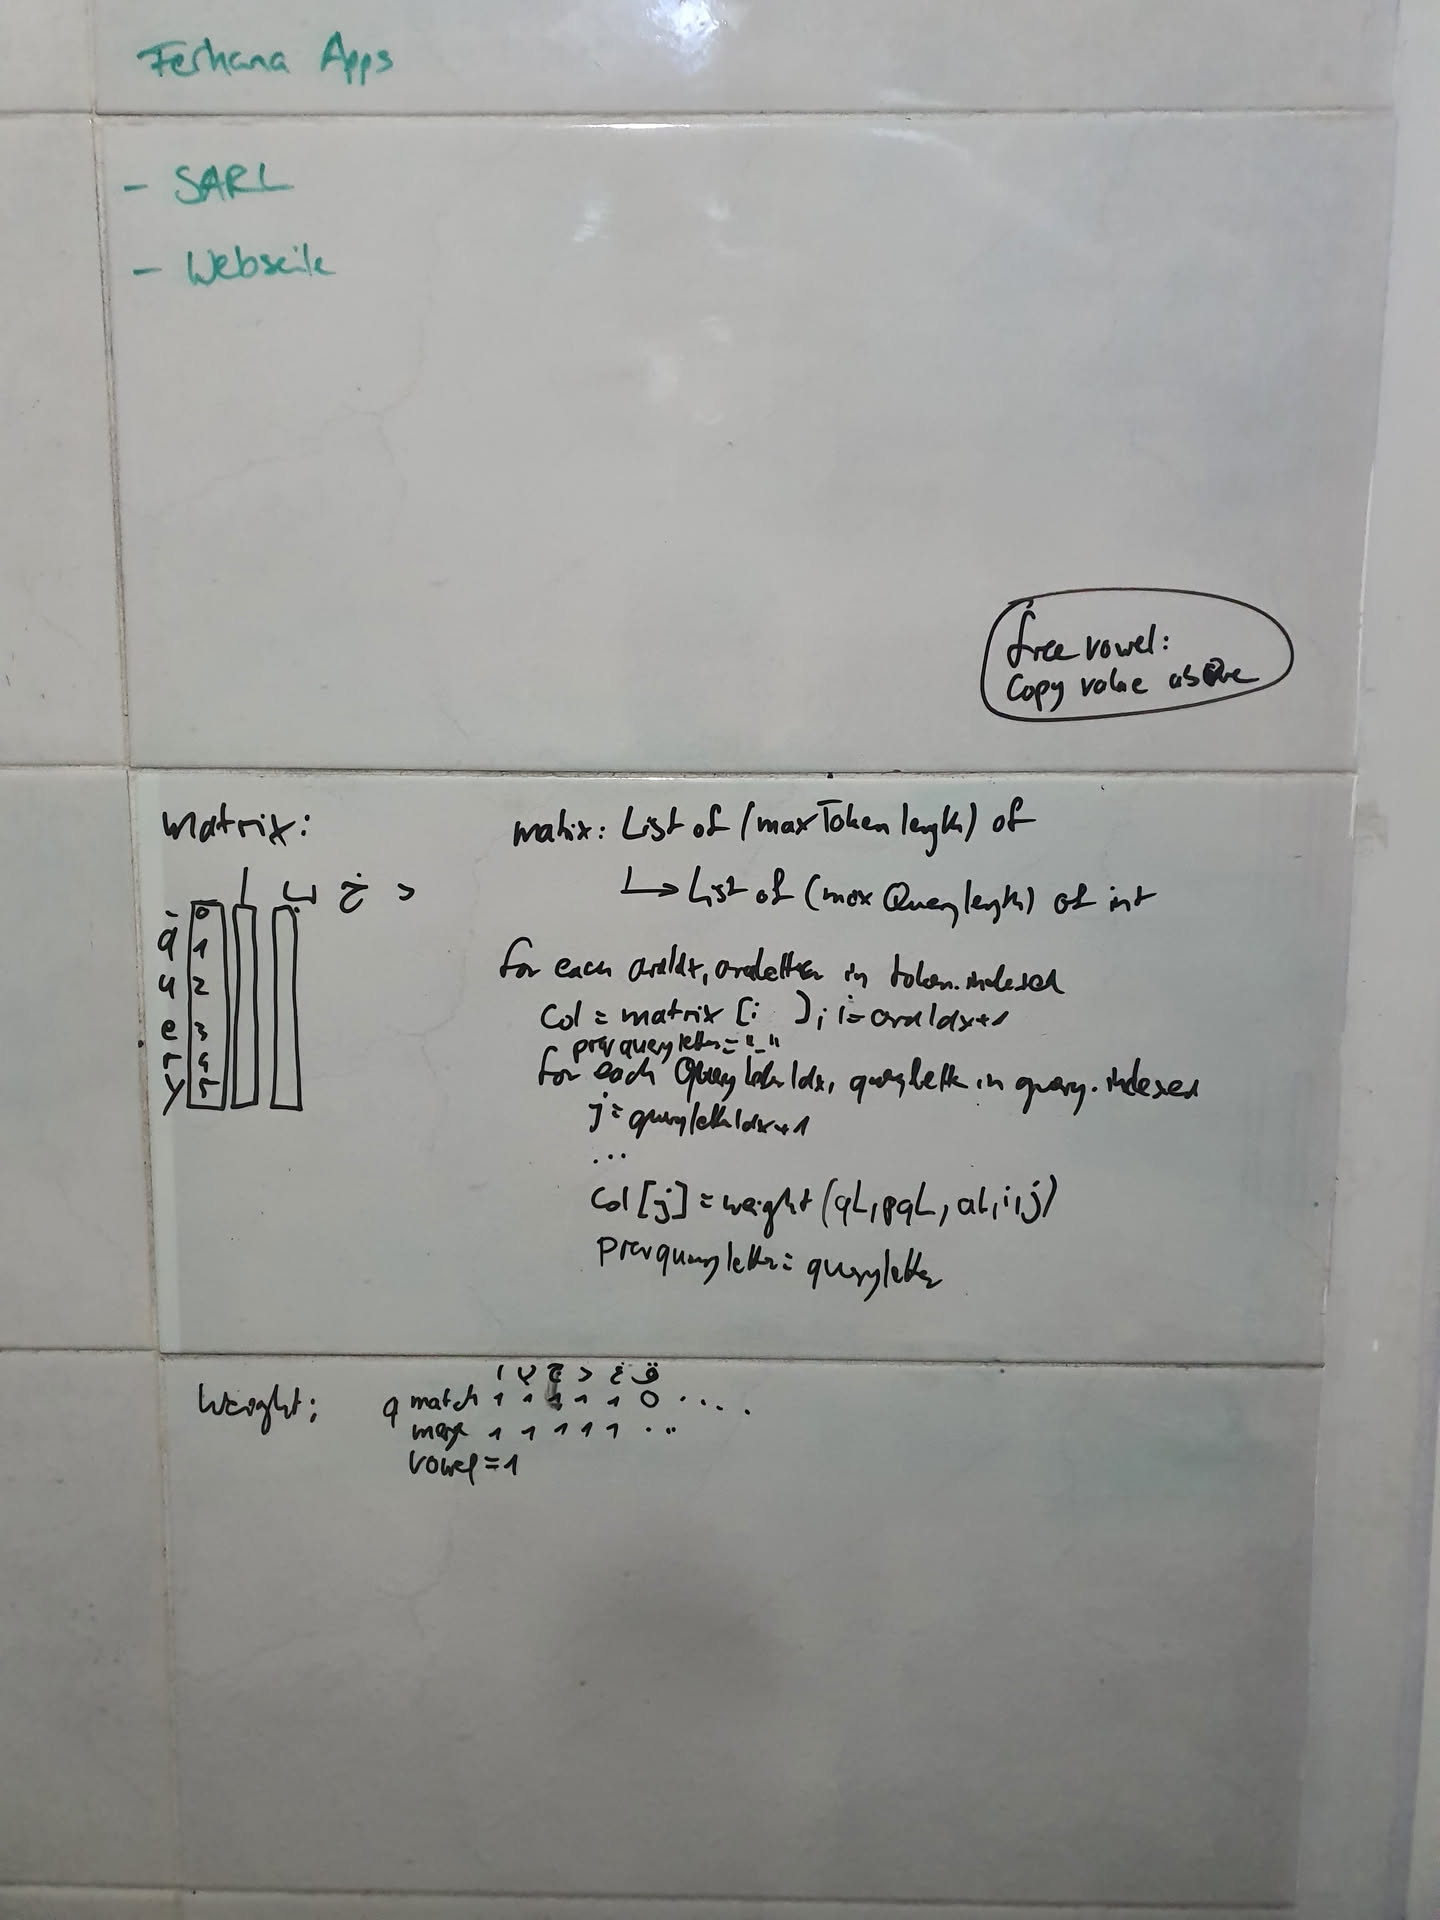 Ferhana Apps
- SARL
- Webseite
free vowel:
Copy value above
Matrix:
ا ب ج د
- 0
q 1
u 2
e 3
r 4
y 5
matrix: List of (maxTokenlength) of
↳ List of (maxQuerylength) of int
for each araIdx, araLetter in token.indexed
Col = matrix [i ]; i=araIdx+1
prevqueryletter="_"
for each QueryletterIdx, queryletter in query.indexed
j=queryletterIdx+1
...
Col[j] = weight (qL, pqL, aL, i, j)
prevqueryletter= queryletter
weight:
ا ب ج د غ ق
q match 1 1 1 1 1 0 ....
1 1 1 1 1 ...
vowel = 1